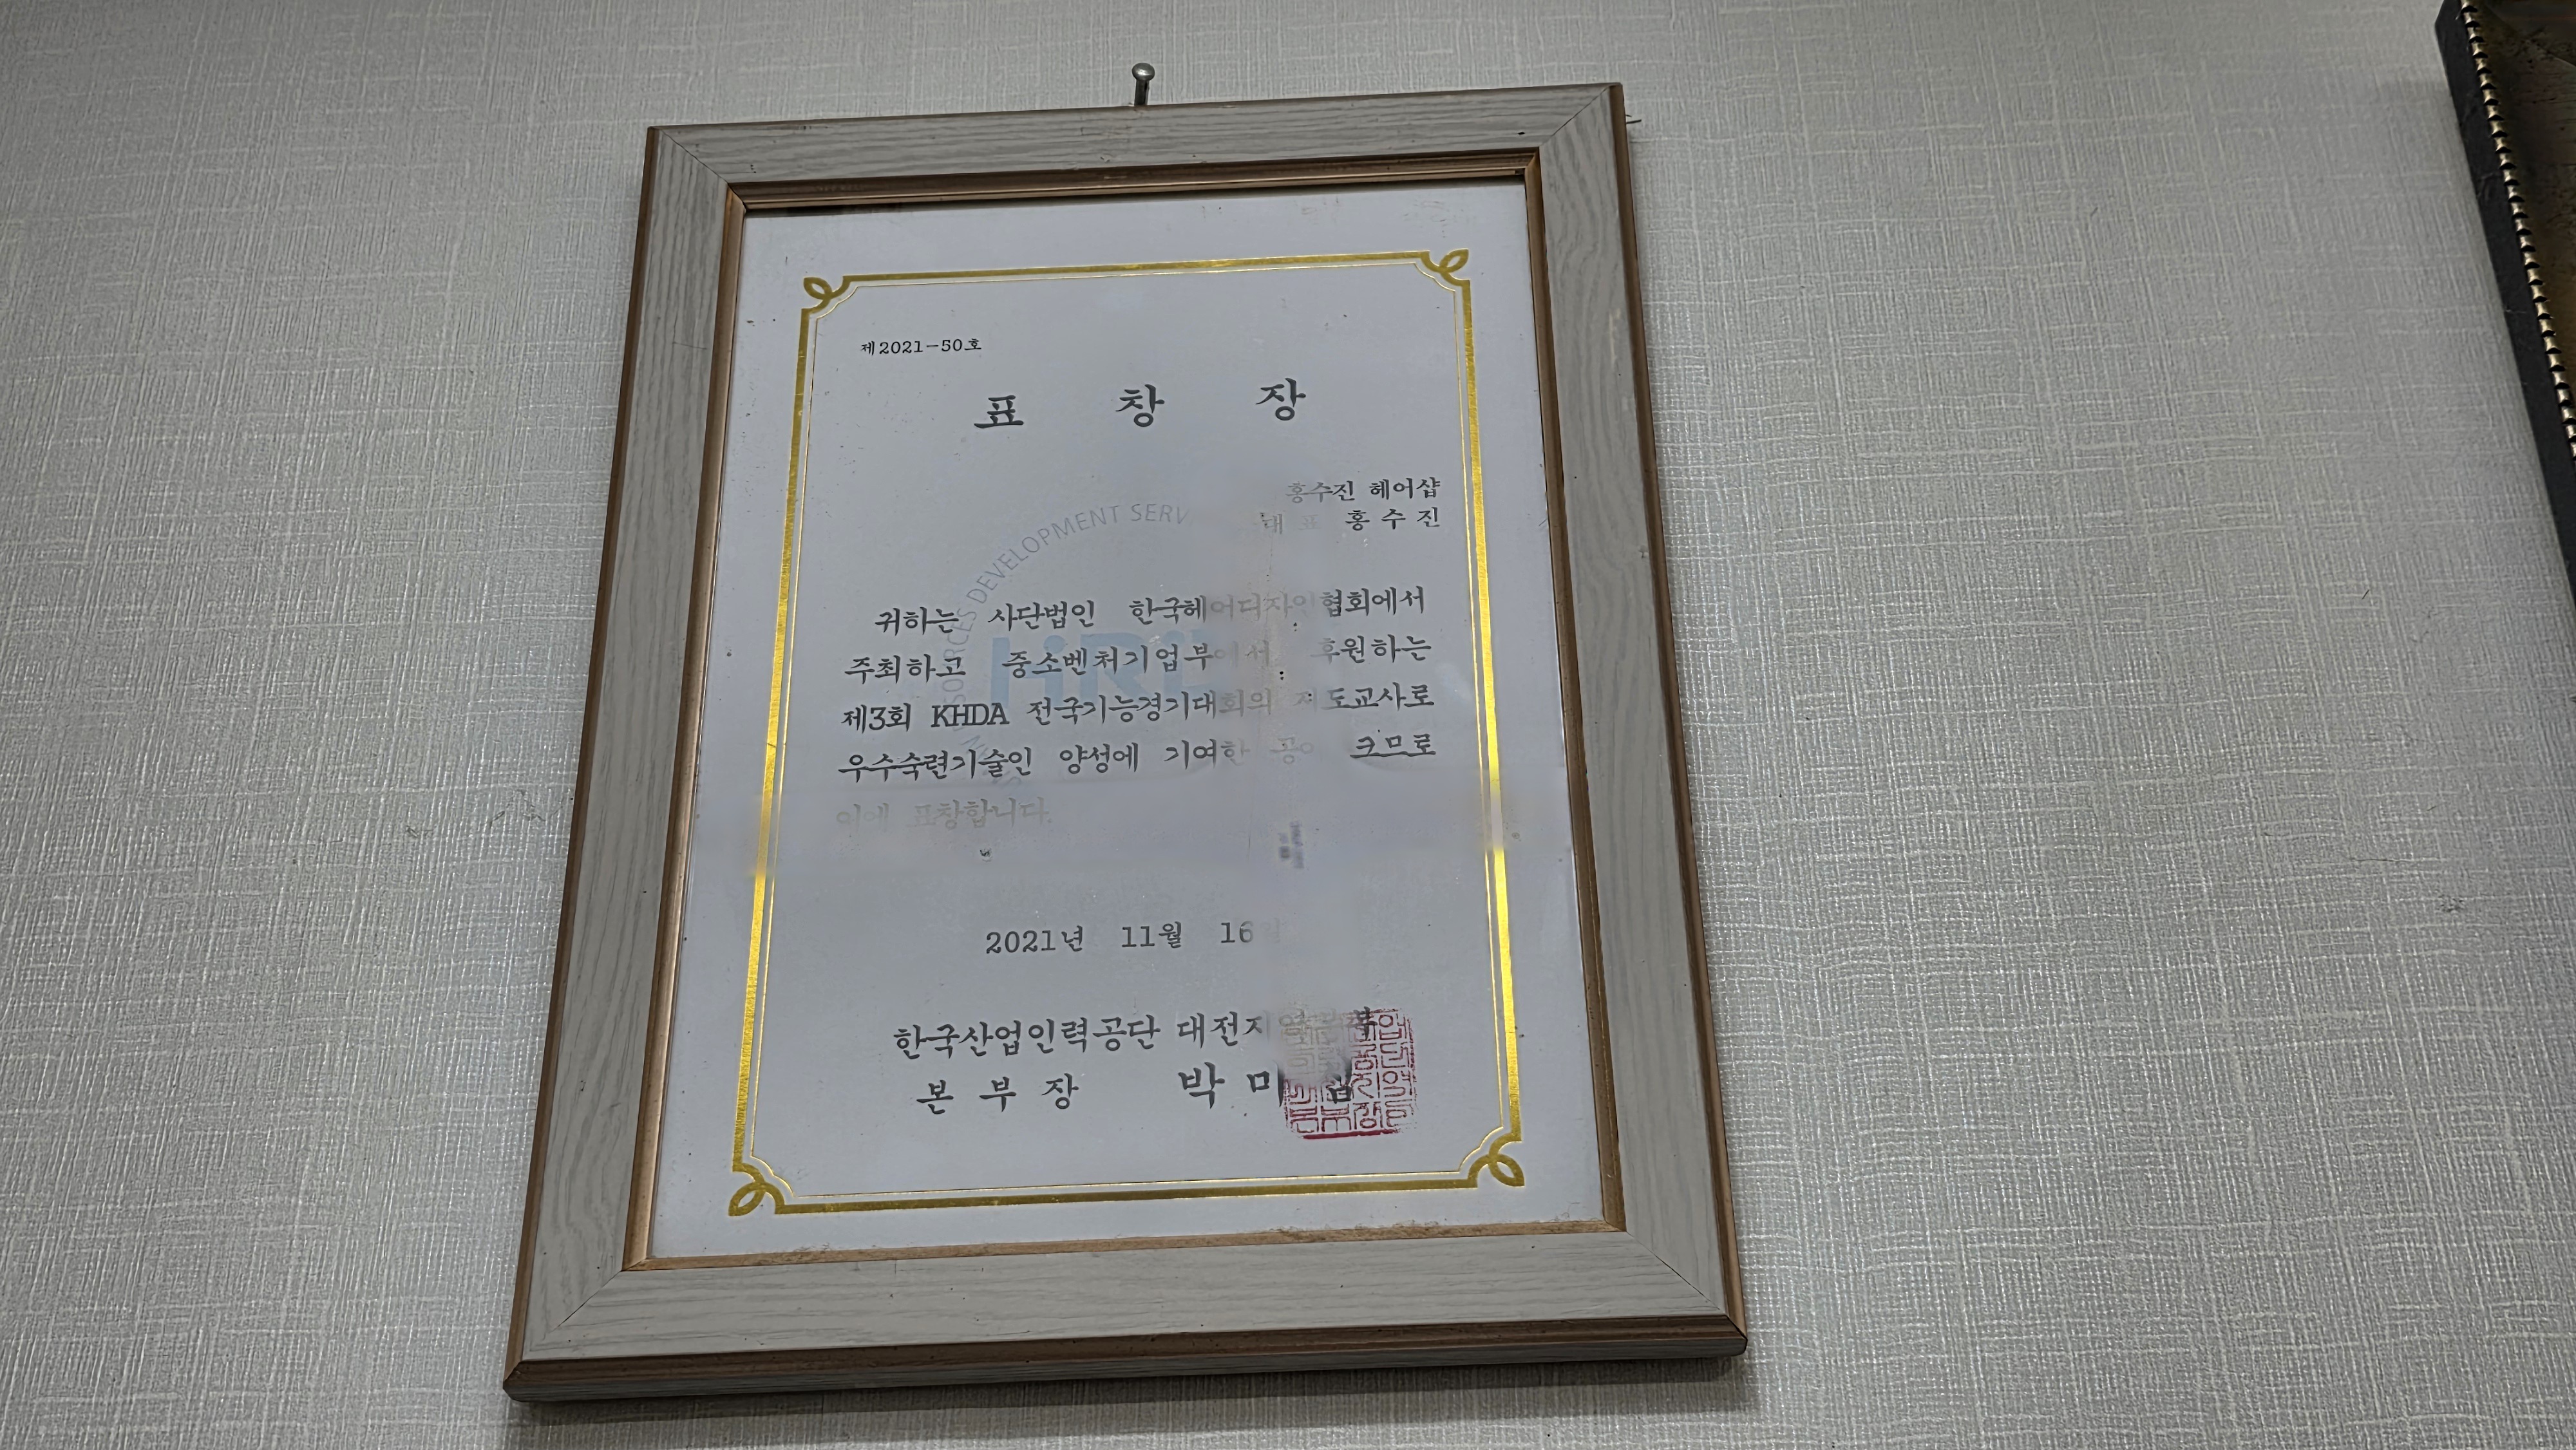 제2021-50호
표 창 장
홍수진 헤어샵
대 표 홍 수 진
HUMAN RESOURCES DEVELOPMENT SERV
귀하는 사단법인 한국헤어디자인협회에서
주최하고 중소벤처기업부에서 후원하는
제3회 KHDA 전국기능경기대회의 지도교사로
우수숙련기술인 양성에 기여한 공이 크므로
이에 표창합니다.
2021년 11월 16일
한국산업인력공단 대전지역본부
본 부 장 박 미